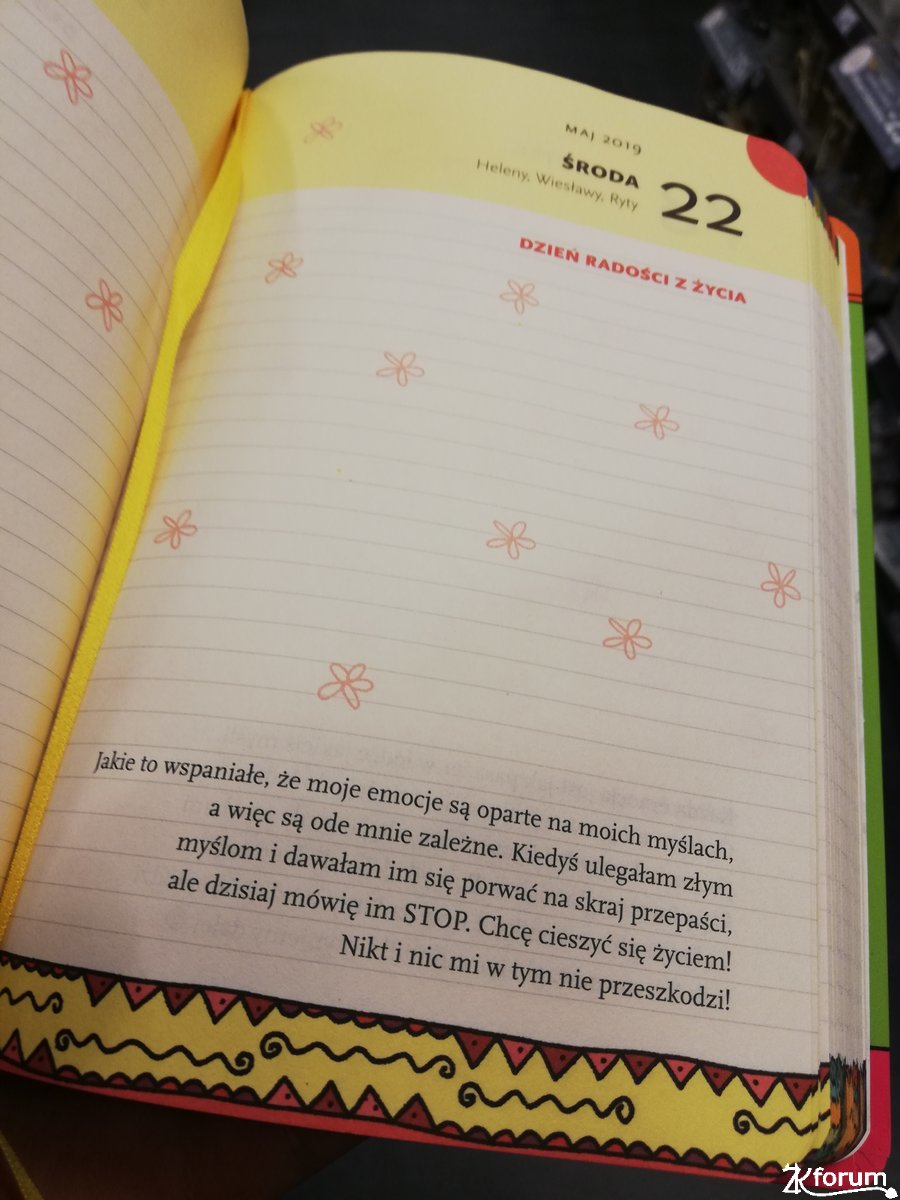 MAJ 2019
ŚRODA
22
Heleny, Wiesławy, Ryty
DZIEŃ RADOŚCI Z ŻYCIA
Jakie to wspaniałe, że moje emocje są oparte na moich myślach,
a więc są ode mnie zależne. Kiedyś ulegałam złym
myślom i dawałam im się porwać na skraj przepaści,
ale dzisiaj mówię im STOP. Chcę cieszyć się życiem!
Nikt i nic mi w tym nie przeszkodzi!
ZKforum